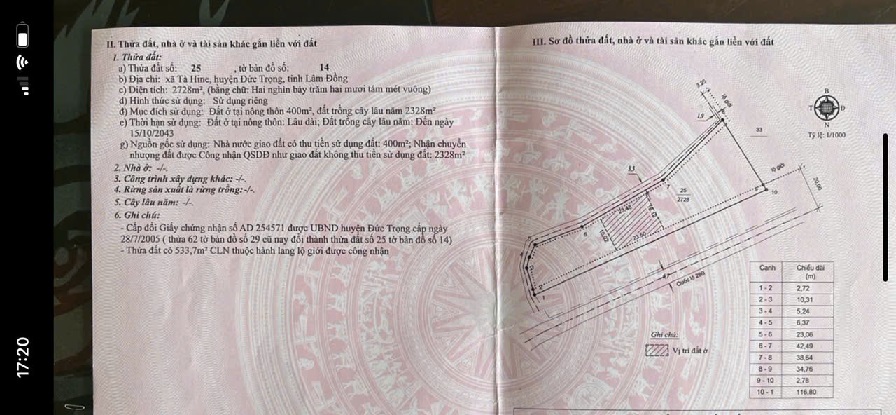 II. Thửa đất, nhà ở và tài sản khác gắn liền với đất
1. Thửa đất:
a) Thửa đất số: 25 , tờ bản đồ số: 14
b) Địa chỉ: xã Tà Hine, huyện Đức Trọng, tỉnh Lâm Đồng
c) Diện tích: 2728m², (bằng chữ: Hai nghìn bảy trăm hai mươi tám mét vuông)
d) Hình thức sử dụng: Sử dụng riêng
đ) Mục đích sử dụng: Đất ở tại nông thôn 400m², đất trồng cây lâu năm 2328m²
e) Thời hạn sử dụng: Đất ở tại nông thôn: Lâu dài; Đất trồng cây lâu năm: Đến ngày
15/10/2043
g) Nguồn gốc sử dụng: Nhà nước giao đất có thu tiền sử dụng đất: 400m²; Nhận chuyển
nhượng đất được Công nhận QSDĐ như giao đất không thu tiền sử dụng đất: 2328m²
2. Nhà ở: -/-.
3. Công trình xây dựng khác: -/-.
4. Rừng sản xuất là rừng trồng: -/-.
5. Cây lâu năm: -/-.
6. Ghi chú:
- Cấp đổi Giấy chứng nhận số AD 254571 được UBND huyện Đức Trọng cấp ngày
28/7/2005 ( thửa 62 tờ bản đồ số 29 cũ nay đổi thành thửa đất số 25 tờ bản đồ số 14)
- Thửa đất có 533,7m² CLN thuộc hành lang lộ giới được công nhận
III. Sơ đồ thửa đất, nhà ở và tài sản khác gắn liền với đất
B
N
Tỷ lệ: 1/1000
25
2728
Quốc lộ 28B
20,00
Ghi chú:
Vị trí đất ở
Cạnh Chiều dài
(m)
1 - 2 2,72
2 - 3 10,31
3 - 4 5,24
4 - 5 6,37
5 - 6 23,06
6 - 7 42,49
7 - 8 38,64
8 - 9 34,76
9 - 10 2,78
10 - 1 116,80
17:20